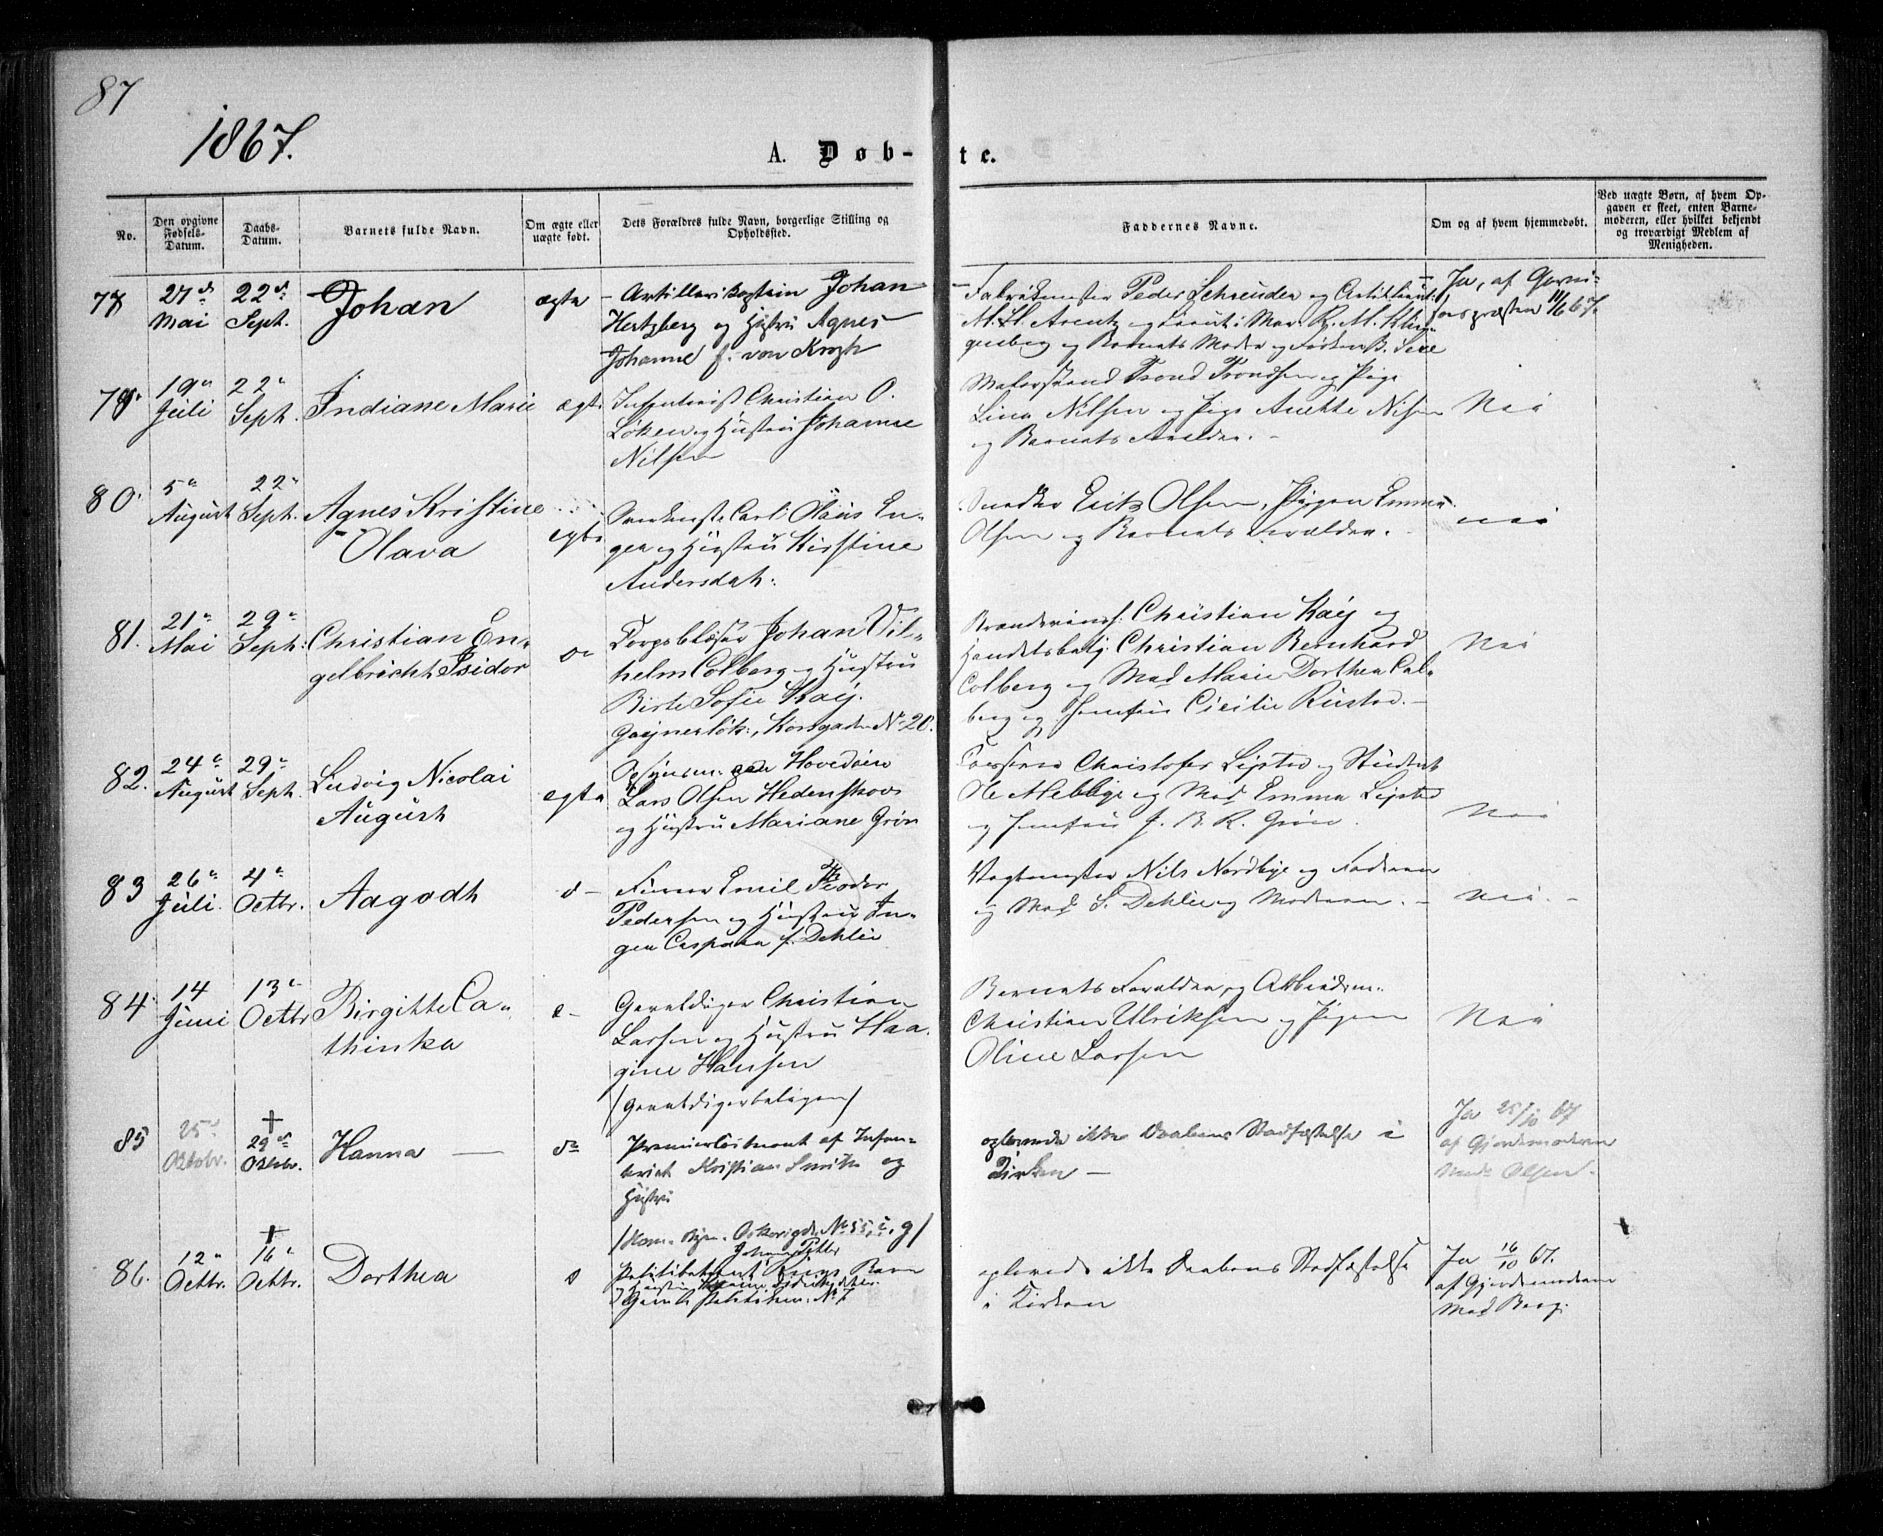 87
1867.
A. Døb-
te.
No.
Den opgivne Fødsels-Datum.
Daabs-Datum.
Barnets fulde Navn.
Om ægte eller uægte født.
Dets Forældres fulde Navn, borgerlige Stilling og Opholdssted.
Faddernes Navne.
Om og af hvem hjemmedøbt.
Ved uægte Børn, af hvem Opgaven er skeet, enten Barnemoderen, eller hvilket bekjendt og troværdigt Medlem af Menigheden.
27d Mai
22d Sept.
Johan
ægte
Artillerikaptein Johan
Hertzberg og Hustru Agnes
Johanne f. von Krogh
Peder Schreuder og
M. H. Arentz
og Barnets Moder og Frøken B.
Ja, af Garni-
sonspræsten 11/6 67.
19de Juli
22de Sept.
Indiane Marie
ægte
Infanterist Christian O.
Løken og Hustru Johanne
Nilsen
Trond Trondsen og Pige
Lina Nilsen og Pige Anette Nilsen
og Barnets Forældre.
Nei
80.
5te August
22de Sept.
Agnes Kristine
Olava
ægte
Carl Olaus En-
ger og Hustru Kirstine
Andersdat:
Snedker Erik Olsen, Pigen Emma
Olsen og Barnets Forældre.
nei
81.
21de Mai
29de Sept:
Christian En-
gelbrecht Isidor
do
Johan Vil-
helm Colberg og Hustru
Birte Sofie Kaij.
Korsgaden No 20.
Christian Kaij og
Christian Bernhard
Colberg og Mad Marie Dorthea Col-
berg og Jomfru Cicilie Rustad.
Nei
82.
24de August
29de Sept.
Ludvig Nicolai
August
ægte
Opsynsm. paa Hovedøen
Lars Olsen Hedenskov
og Hustru Mariane Grøn
Christofer Lysted og Student
Ole Mebbye og Mad Emma Lysted
og Jomfru J. B. R. Grøn.
Nei
83
26de Juli.
4de Octbr.
Aagodh
d
Emil Theodor
Pedersen og Hustru In-
ger Caspara f. Dehlie
Vagtmester Nils Nordbye og Faderen
og Mad S. Dehlie og Moderen.
Nei.
84.
14 Juni
13de Octbr
Birgitte Ca-
thinka
Gevaldiger Christian
Larsen og Hustru Haa-
gine Hansen
(Gevaldigerboligen)
Barnets Forældre og Arbeidsm.
Christian Ulriksen og Pigen
Oline Larsen
Nei
85
25de Oktobr.
† 29de Oktobr.
Hanna
do
Premierlieutnant af Infan-
teriet Kristian Smith og
Hustru
oplevede ikke Daabens Stadfæstelse i
Kirken
Ja 25/10 67
af Gjordemoderen
Mad Olsen.
86.
12te Octbr.
† 16de Octbr.
Dorthea
Politibetjent
oplevede ikke Daabens Stadfæstelse
i Kirken
Ja 16/10 67.
af Gjordemoderen
Mad Berg.